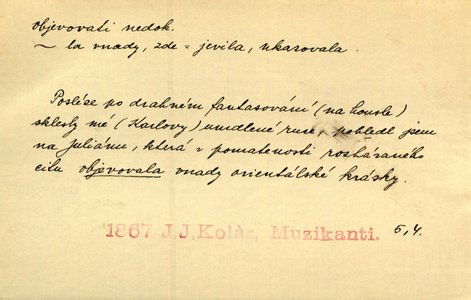 objevovati nedok.
~ la vnady, zde = jevila, ukazovala.
Posléze po drahném fantasování (na housle)
sklesly mé (Karlovy) umdlené ruce, pohlédl jsem
na Juliánu, která v pomatenosti rozháraného
citu objevovala vnady orientálské krásky.
1867 J.J.Kolár, Muzikanti. 5,4.